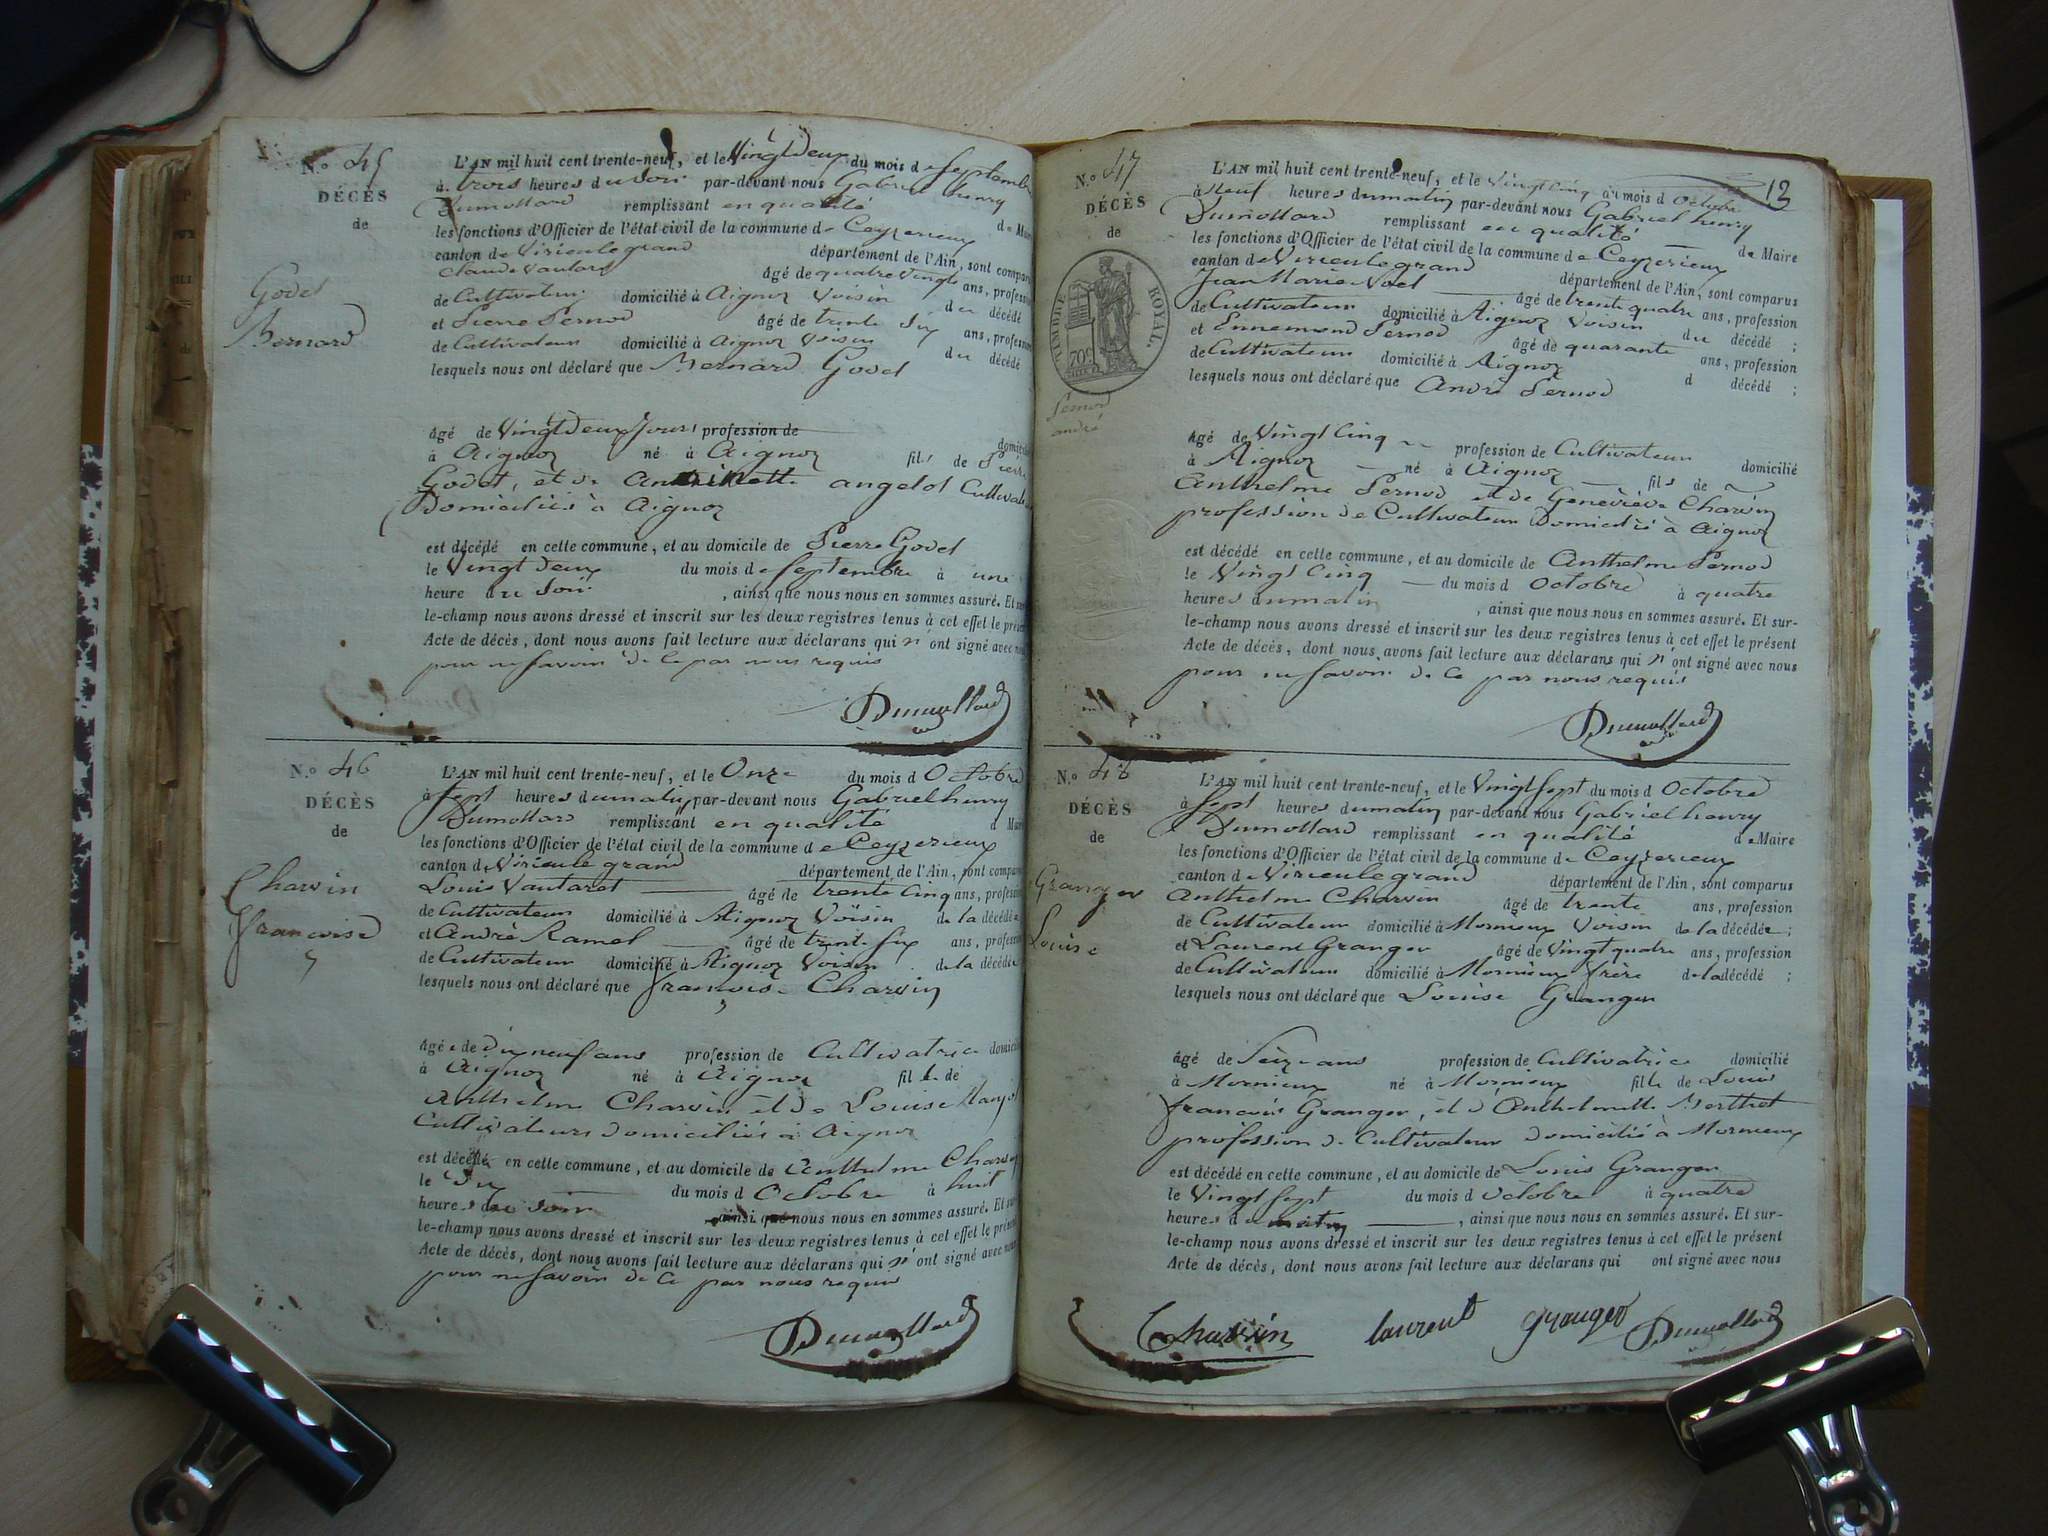 N.º 45
DÉCÈS
de
Godet
Bernard
L'AN mil huit cent trente-neuf, et le Vingt Deux du mois de Septembre
à trois heures du Soir par-devant nous Gabriel henry
Dumollard remplissant en qualité de Maire
les fonctions d'Officier de l'état civil de la commune de Ceyzerieux
canton de Virieu le grand département de l'Ain, sont comparus
Claude Vautaret âgé de quatre Vingts ans, profession
de Cultivateur domicilié à Aignoz Voisin du décédé
et Pierre Pernod âgé de trente Six ans, profession
de Cultivateur domicilié à Aignoz Voisin du décédé
lesquels nous ont déclaré que Bernard Godet
âgé de Vingt Deux Jours profession de
à Aignoz né à Aignoz fils de Pierre
Godet, et de angelot
Domiciliés à Aignoz
est décédé en cette commune, et au domicile de Pierre Godet
le Vingt Deux du mois de Septembre à une
heure du Soir, ainsi que nous nous en sommes assuré. Et sur
le-champ nous avons dressé et inscrit sur les deux registres tenus à cet effet le présent
Acte de décès, dont nous avons fait lecture aux déclarans qui n'ont signé avec nous
pour ne Savoir de ce par nous requis
Dumollard
N.º 46
DÉCÈS
de
Charvin
françoise
L'AN mil huit cent trente-neuf, et le Onze du mois d Octobre
à Sept heures du matin par-devant nous Gabriel henry
Dumollard remplissant en qualité d Maire
les fonctions d'Officier de l'état civil de la commune de Ceyzerieux
canton de Virieu le grand département de l'Ain, sont comparus
Louis Vautaret âgé de trente Cinq ans, profession
de Cultivateur domicilié à Aignoz Voisin de la décédée
et André Ramel âgé de trente Six ans, profession
de Cultivateur domicilié à Aignoz Voisin de la décédée
lesquels nous ont déclaré que françoise Charvin
âgée de Dix neuf ans profession de Cultivatrice domicilié
à Aignoz né à Aignoz fille de
Anthelme Charvin et de Louise
Cultivateurs domiciliés à Aignoz
est décédé en cette commune, et au domicile de Anthelme Charvin
le Dix du mois d Octobre à huit
heures du Soir ainsi que nous nous en sommes assuré. Et sur
le-champ nous avons dressé et inscrit sur les deux registres tenus à cet effet le présent
Acte de décès, dont nous avons fait lecture aux déclarans qui n'ont signé avec nous
pour ne Savoir de ce par nous requis
Dumollard
13
N.º 47
DÉCÈS
de
TIMBRE ROYAL.
Pernod
andré
L'AN mil huit cent trente-neuf, et le Vingt Cinq du mois d Octobre
à Neuf heures du matin par-devant nous Gabriel henry
Dumollard remplissant en qualité de Maire
les fonctions d'Officier de l'état civil de la commune de Ceyzerieux
canton de Virieu le grand département de l'Ain, sont comparus
Jean Marie Noël âgé de trente quatre ans, profession
de Cultivateur domicilié à Aignoz Voisin du décédé ;
et Ennemond Pernod âgé de quarante ans, profession
de Cultivateur domicilié à Aignoz d décédé ;
lesquels nous ont déclaré que André Pernod
âgé de Vingt Cinq profession de Cultivateur domicilié
à Aignoz né à Aignoz fils de
Anthelme Pernod et de Geneviève Charvin
profession de Cultivateur Domicilié à Aignoz
est décédé en cette commune, et au domicile de Anthelme Pernod
le Vingt Cinq du mois d Octobre à quatre
heures du matin, ainsi que nous nous en sommes assuré. Et sur-
le-champ nous avons dressé et inscrit sur les deux registres tenus à cet effet le présent
Acte de décès, dont nous avons fait lecture aux déclarans qui n'ont signé avec nous
pour ne Savoir de ce par nous requis
Dumollard
N.º 48
DÉCÈS
de
Granger
Louise
L'AN mil huit cent trente-neuf, et le Vingt Sept du mois d Octobre
à Sept heures du matin par-devant nous Gabriel henry
Dumollard remplissant en qualité de Maire
les fonctions d'Officier de l'état civil de la commune de Ceyzerieux
canton de Virieu le grand département de l'Ain, sont comparus
Anthelme Charvin âgé de trente ans, profession
de Cultivateur domicilié à Mornieux Voisin de la décédée ;
et Laurent Granger âgé de Vingt quatre ans, profession
de Cultivateur domicilié à Mornieux frère de la décédé ;
lesquels nous ont déclaré que Louise Granger
âgé de Seize ans profession de Cultivatrice domicilié
à Mornieux né à Mornieux fille de Louis
françois Granger, et d'Anthelmette Berthet
profession de Cultivateur domicilié à Mornieux
est décédé en cette commune, et au domicile de Louis Granger
le Vingt Sept du mois d Octobre à quatre
heures du matin, ainsi que nous nous en sommes assuré. Et sur-
le-champ nous avons dressé et inscrit sur les deux registres tenus à cet effet le présent
Acte de décès, dont nous avons fait lecture aux déclarans qui ont signé avec nous
Charvin laurent granger Dumollard